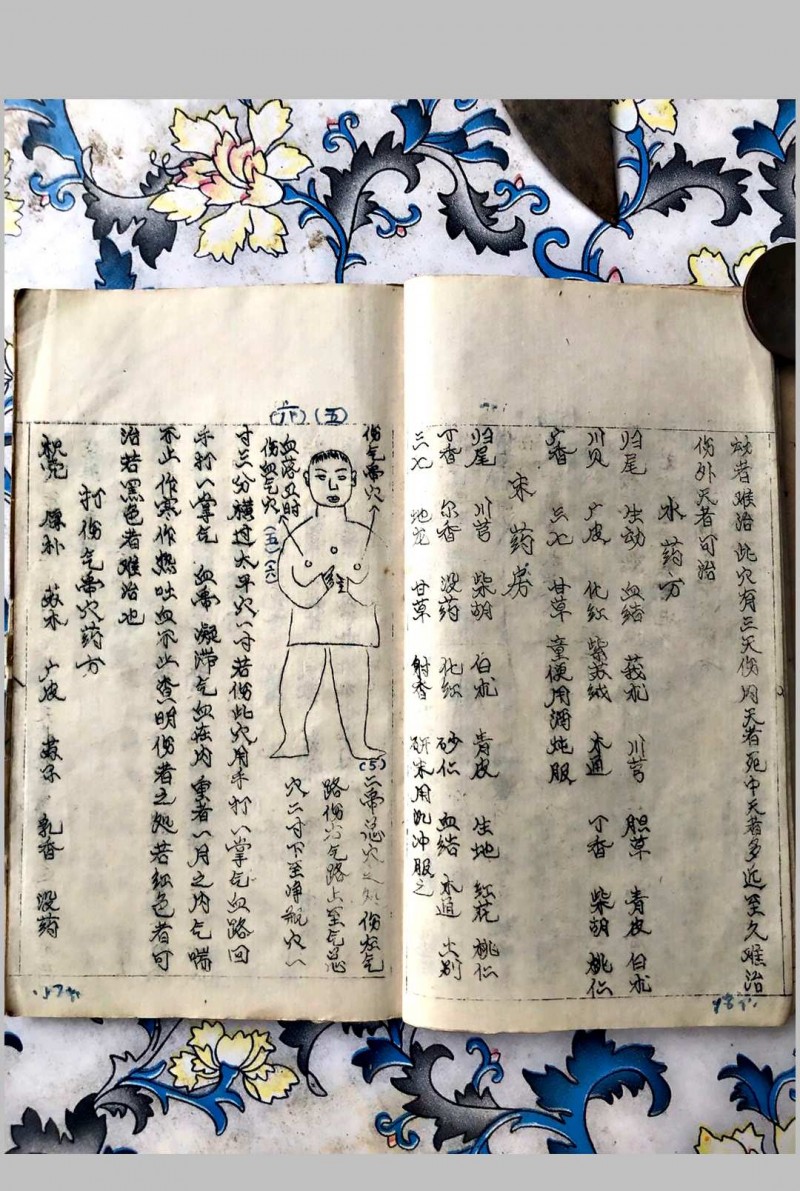 动者难治 此穴有三天伤内天者死中天者多近至久难治
伤外天者可治
水药方
归尾 生动 血结 莪朮 川芎 胆草 青皮 白朮
川贝 广皮 化红 紫苏绒 木通 丁香 柴胡 桃仁
香 三七 甘草 童便用酒炖服
末药房
归尾 川芎 柴胡 白朮 青皮 生地 红花 桃仁
丁香 尔香 没药 化红 砂仁 血结 木通
三七 地龙 甘草 射香 研末用 冲服之
(五)
(六)
伤气帝穴
血路丑时
伤血气穴
(五)(六)
(5)
二帝总穴之处 伤 气
路伤 气路上至气总
穴二寸下至净瓶穴一
寸三分横过太平穴一寸若伤此穴用手打一掌气血路回
手打一掌气 血帝 凝滞气血在内 重者一月之内气喘
不止作寒作热吐血不止 查明伤者之处若红色者可
治若黑色者难治也
打伤气帝穴药方
枳壳 朴 苏木 广皮 苏子 乳香 没药